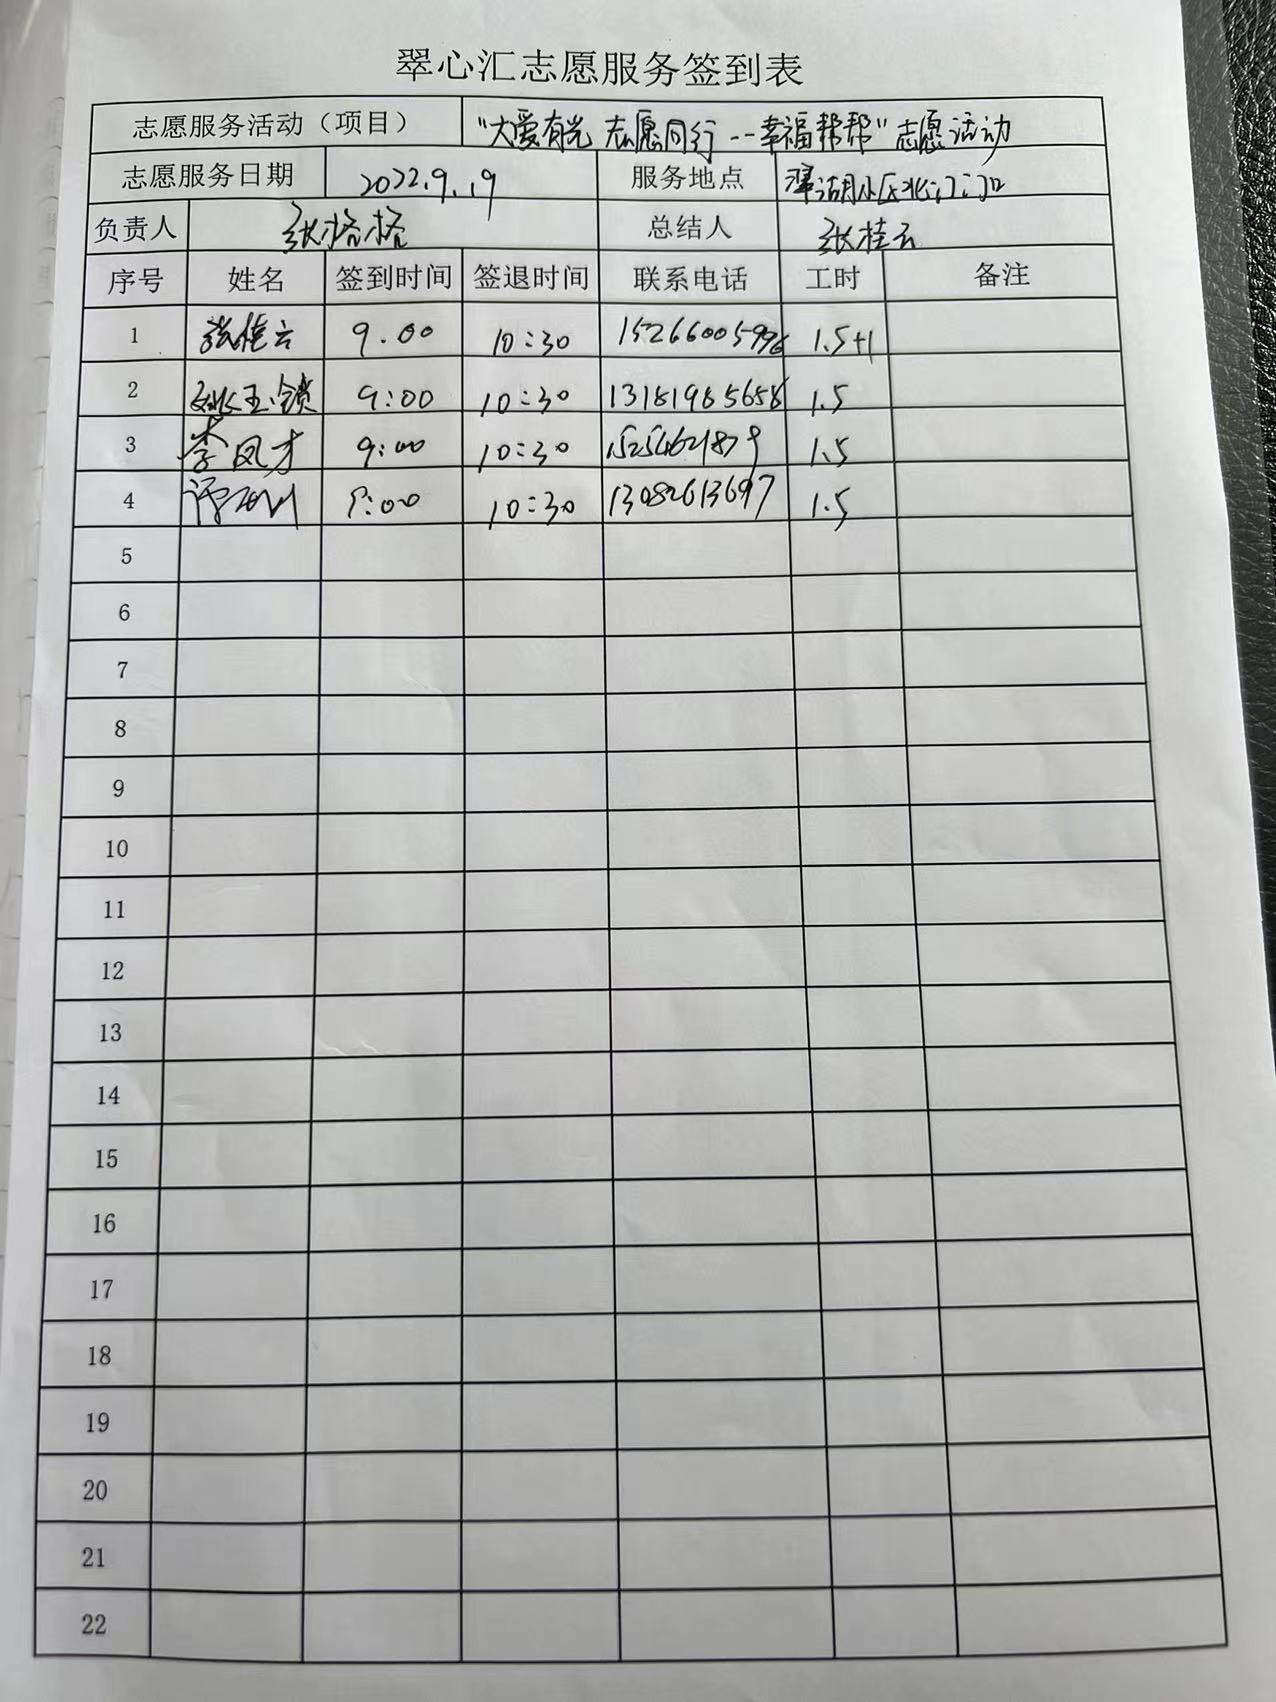 翠心汇志愿服务签到表
志愿服务活动（项目） "大爱有光 志愿同行--幸福帮帮"志愿活动
志愿服务日期 2022.9.19 服务地点 翠湖小区北门门口
负责人 张格格 总结人 张桂云
序号 姓名 签到时间 签退时间 联系电话 工时 备注
1 张桂云 9.00 10:30 1.5+1
2 姚玉锁 9:00 10:30 13181985658 1.5
3 李凤才 9:00 10:30 1.5
4 9:00 10:30 13082613697 1.5
5
6
7
8
9
10
11
12
13
14
15
16
17
18
19
20
21
22